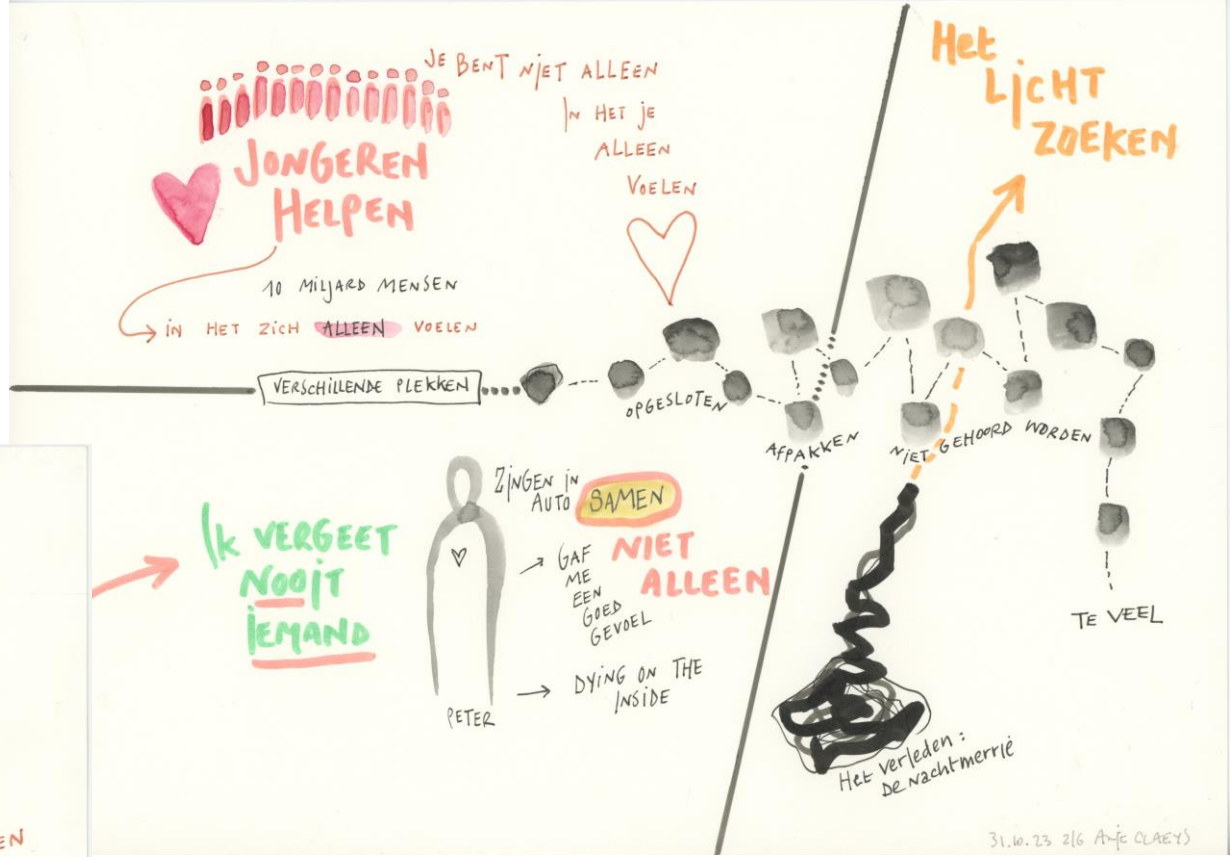 JE BENT NIET ALLEEN
IN HET JE
ALLEEN
VOELEN
JONGEREN
HELPEN
10 MILJARD MENSEN
IN HET ZICH ALLEEN VOELEN
VERSCHILLENDE PLEKKEN
OPGESLOTEN
AFPAKKEN
NIET GEHOORD WORDEN
TE VEEL
Het
LICHT
ZOEKEN
Ik VERGEET
NOOIT
IEMAND
ZINGEN IN
AUTO SAMEN
NIET
ALLEEN
GAF
ME
EEN
GOED
GEVOEL
DYING ON THE
INSIDE
PETER
Het verleden:
De nachtmerrie
EN
31.10.23 2/6 Anje CLAEYS